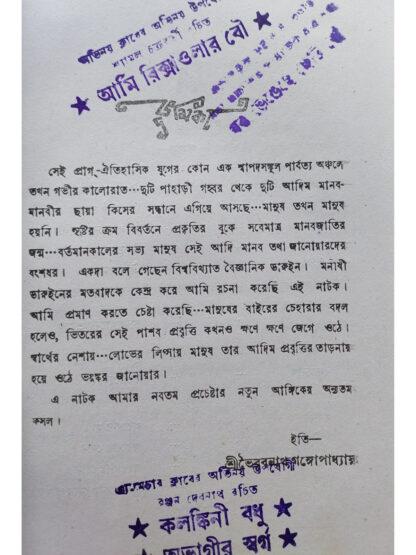 অভিনয় ক্লাবের অভিনয় উপযোগী
শ্যামল চক্রবর্তী রচিত
★ আমি রিক্সাওলার বৌ ★
ঘর ভেঙেছে
ভূমিকা
সেই প্রাগ্-ঐতিহাসিক যুগের কোন এক শ্বাপদসঙ্কুল পার্বত্য অঞ্চলে
তখন গভীর কালোরাত···দুটি পাহাড়ী গহ্বর থেকে দুটি আদিম মানব-
মানবীর ছায়া কিসের সন্ধানে এগিয়ে আসছে···মানুষ তখন মানুষ
হয়নি। সৃষ্টির ক্রম বিবর্তনে প্রকৃতির বুকে সবেমাত্র মানবজাতির
জন্ম···বর্তমানকালের সভ্য মানুষ সেই আদি মানব তথা জানোয়ারদের
বংশধর। একদা বলে গেছেন বিশ্ববিখ্যাত বৈজ্ঞানিক ডারুইন। মনীষী
ডারুইনের মতবাদকে কেন্দ্র করে আমি রচনা করেছি এই নাটক।
আমি প্রমাণ করতে চেষ্টা করেছি···মানুষের বাইরের চেহারার বদল
হলেও, ভিতরের সেই পাশব প্রবৃত্তি কখনও ক্ষণে ক্ষণে জেগে ওঠে।
স্বার্থের নেশায়···লোভের লিপ্সায় মানুষ তার আদিম প্রবৃত্তির তাড়নায়
হয়ে ওঠে ভয়ঙ্কর জানোয়ার।
এ নাটক আমার নবতম প্রচেষ্টার নতুন আঙ্গিকের অন্যতম
ফসল।
ইতি—
শ্রীভৈরবনাথ গঙ্গোপাধ্যায়
ক্লাবের অভিনয় উপযোগী
রঞ্জন দেবনাথ রচিত
★ কলঙ্কিনী বধূ ★
★ অভাগীর স্বর্গ ★